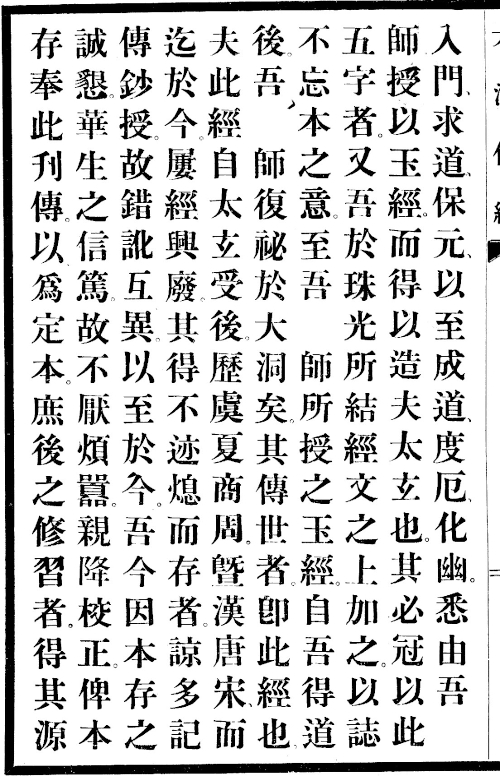 入門求道、保元、以至成道、度厄、化幽。悉由吾
師授以玉經。而得以造夫太玄也。其必冠以此
五字者。又吾於珠光所結經文之上加之。以誌
不忘本之意。至吾　師所授之玉經。自吾得道
後吾、　師復祕於大洞矣。其傳世者。卽此經也。
夫此經自太玄受後。歷虞夏商周。曁漢唐宋。而
迄於今。屢經興廢。其得不迹熄而存者。諒多記
傳鈔授。故錯訛互異。以至於今。吾今因本存之
誠懇。華生之信篤。故不厭煩囂。親降校正。俾本
存奉此刊傳。以爲定本。庶後之修習者。得其源